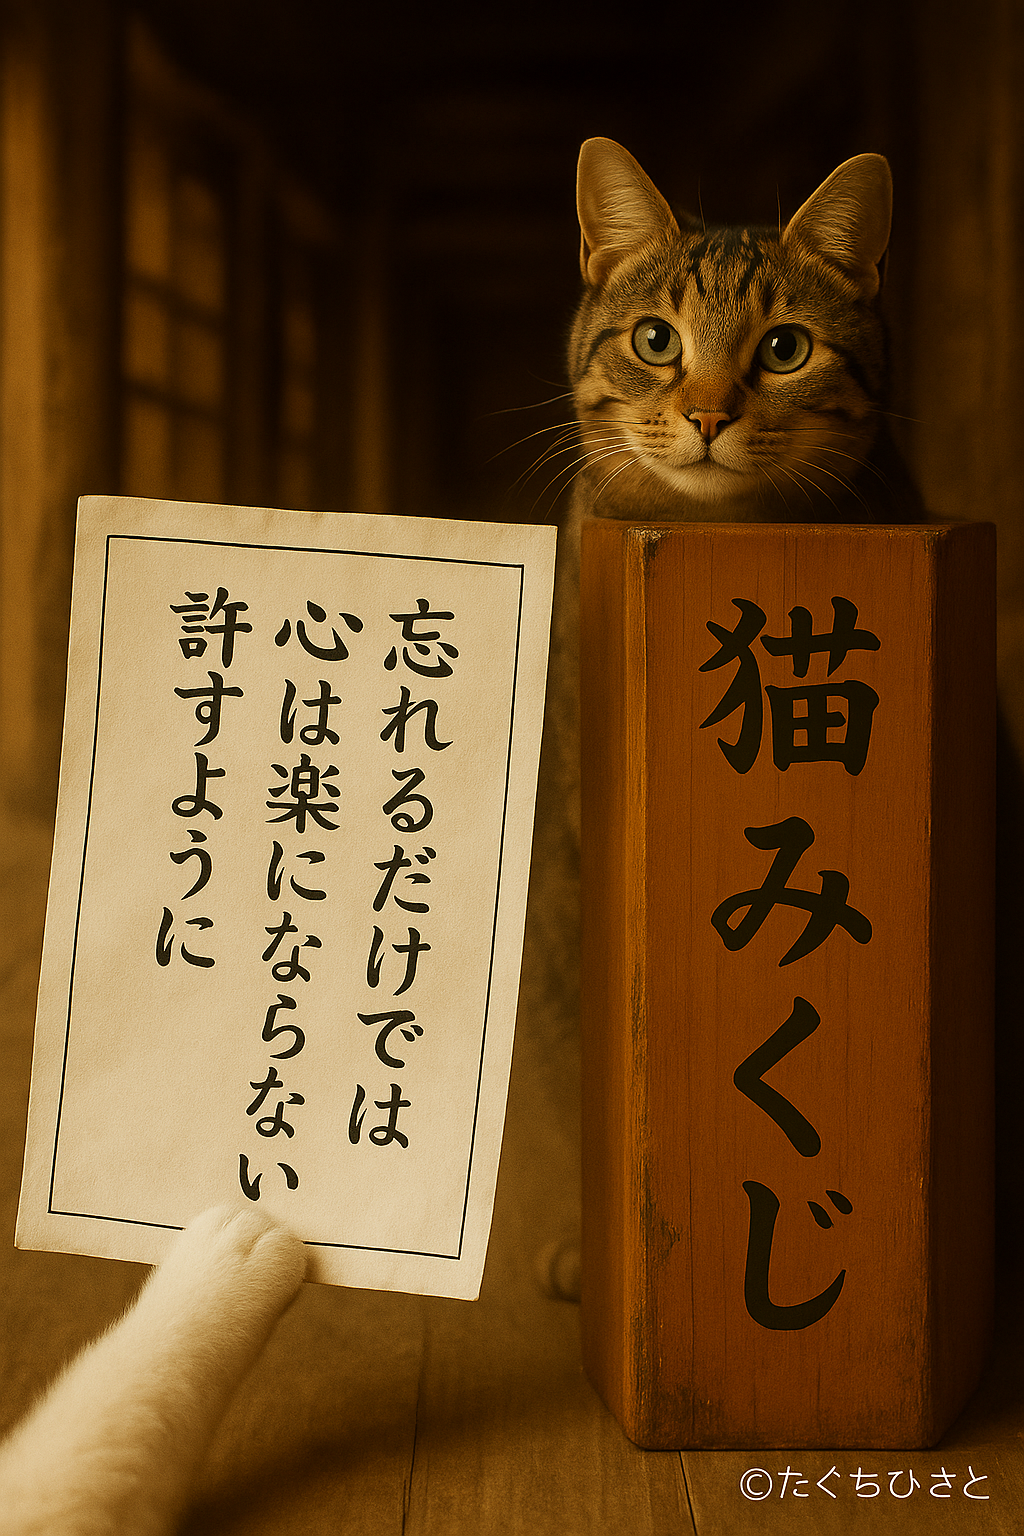 忘れるだけでは
心は楽にならない
許すように
猫みくじ
©たぐちひさと